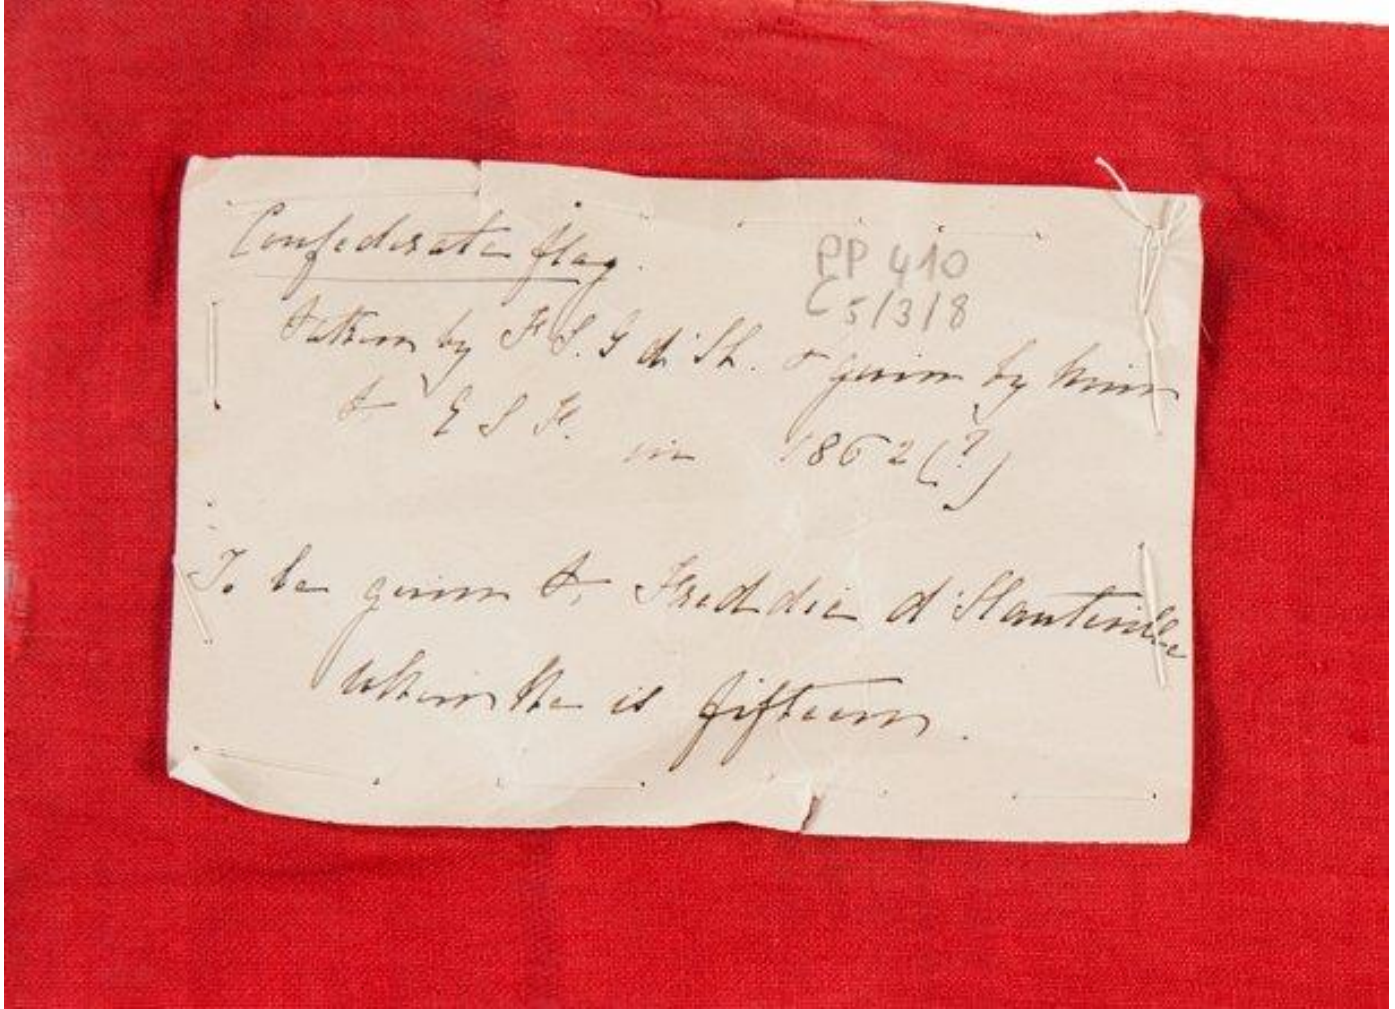 Confederate flag.
PP 410
C 5/3/8
taken by F. S. G d'H. & given by him
to E S F. in 1862 (?)
To be given to Freddie d'Hauteville
when he is fifteen.